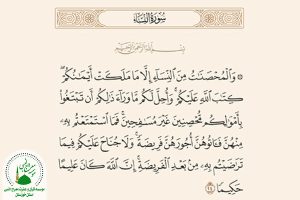 سُورَةُ النِّسَاءِ
بِسْمِ اللَّهِ الرَّحْمَٰنِ الرَّحِيمِ
۞ وَالْمُحْصَنَاتُ مِنَ النِّسَاءِ إِلَّا مَا مَلَكَتْ أَيْمَانُكُمْ
كِتَابَ اللَّهِ عَلَيْكُمْ وَأُحِلَّ لَكُم مَّا وَرَاءَ ذَٰلِكُمْ أَن تَبْتَغُوا
بِأَمْوَالِكُم مُّحْصِنِينَ غَيْرَ مُسَافِحِينَ فَمَا اسْتَمْتَعْتُم بِهِ
مِنْهُنَّ فَآتُوهُنَّ أُجُورَهُنَّ فَرِيضَةً وَلَا جُنَاحَ عَلَيْكُمْ فِيمَا
تَرَاضَيْتُم بِهِ مِن بَعْدِ الْفَرِيضَةِ إِنَّ اللَّهَ كَانَ عَلِيمًا
حَكِيمًا ٢٤